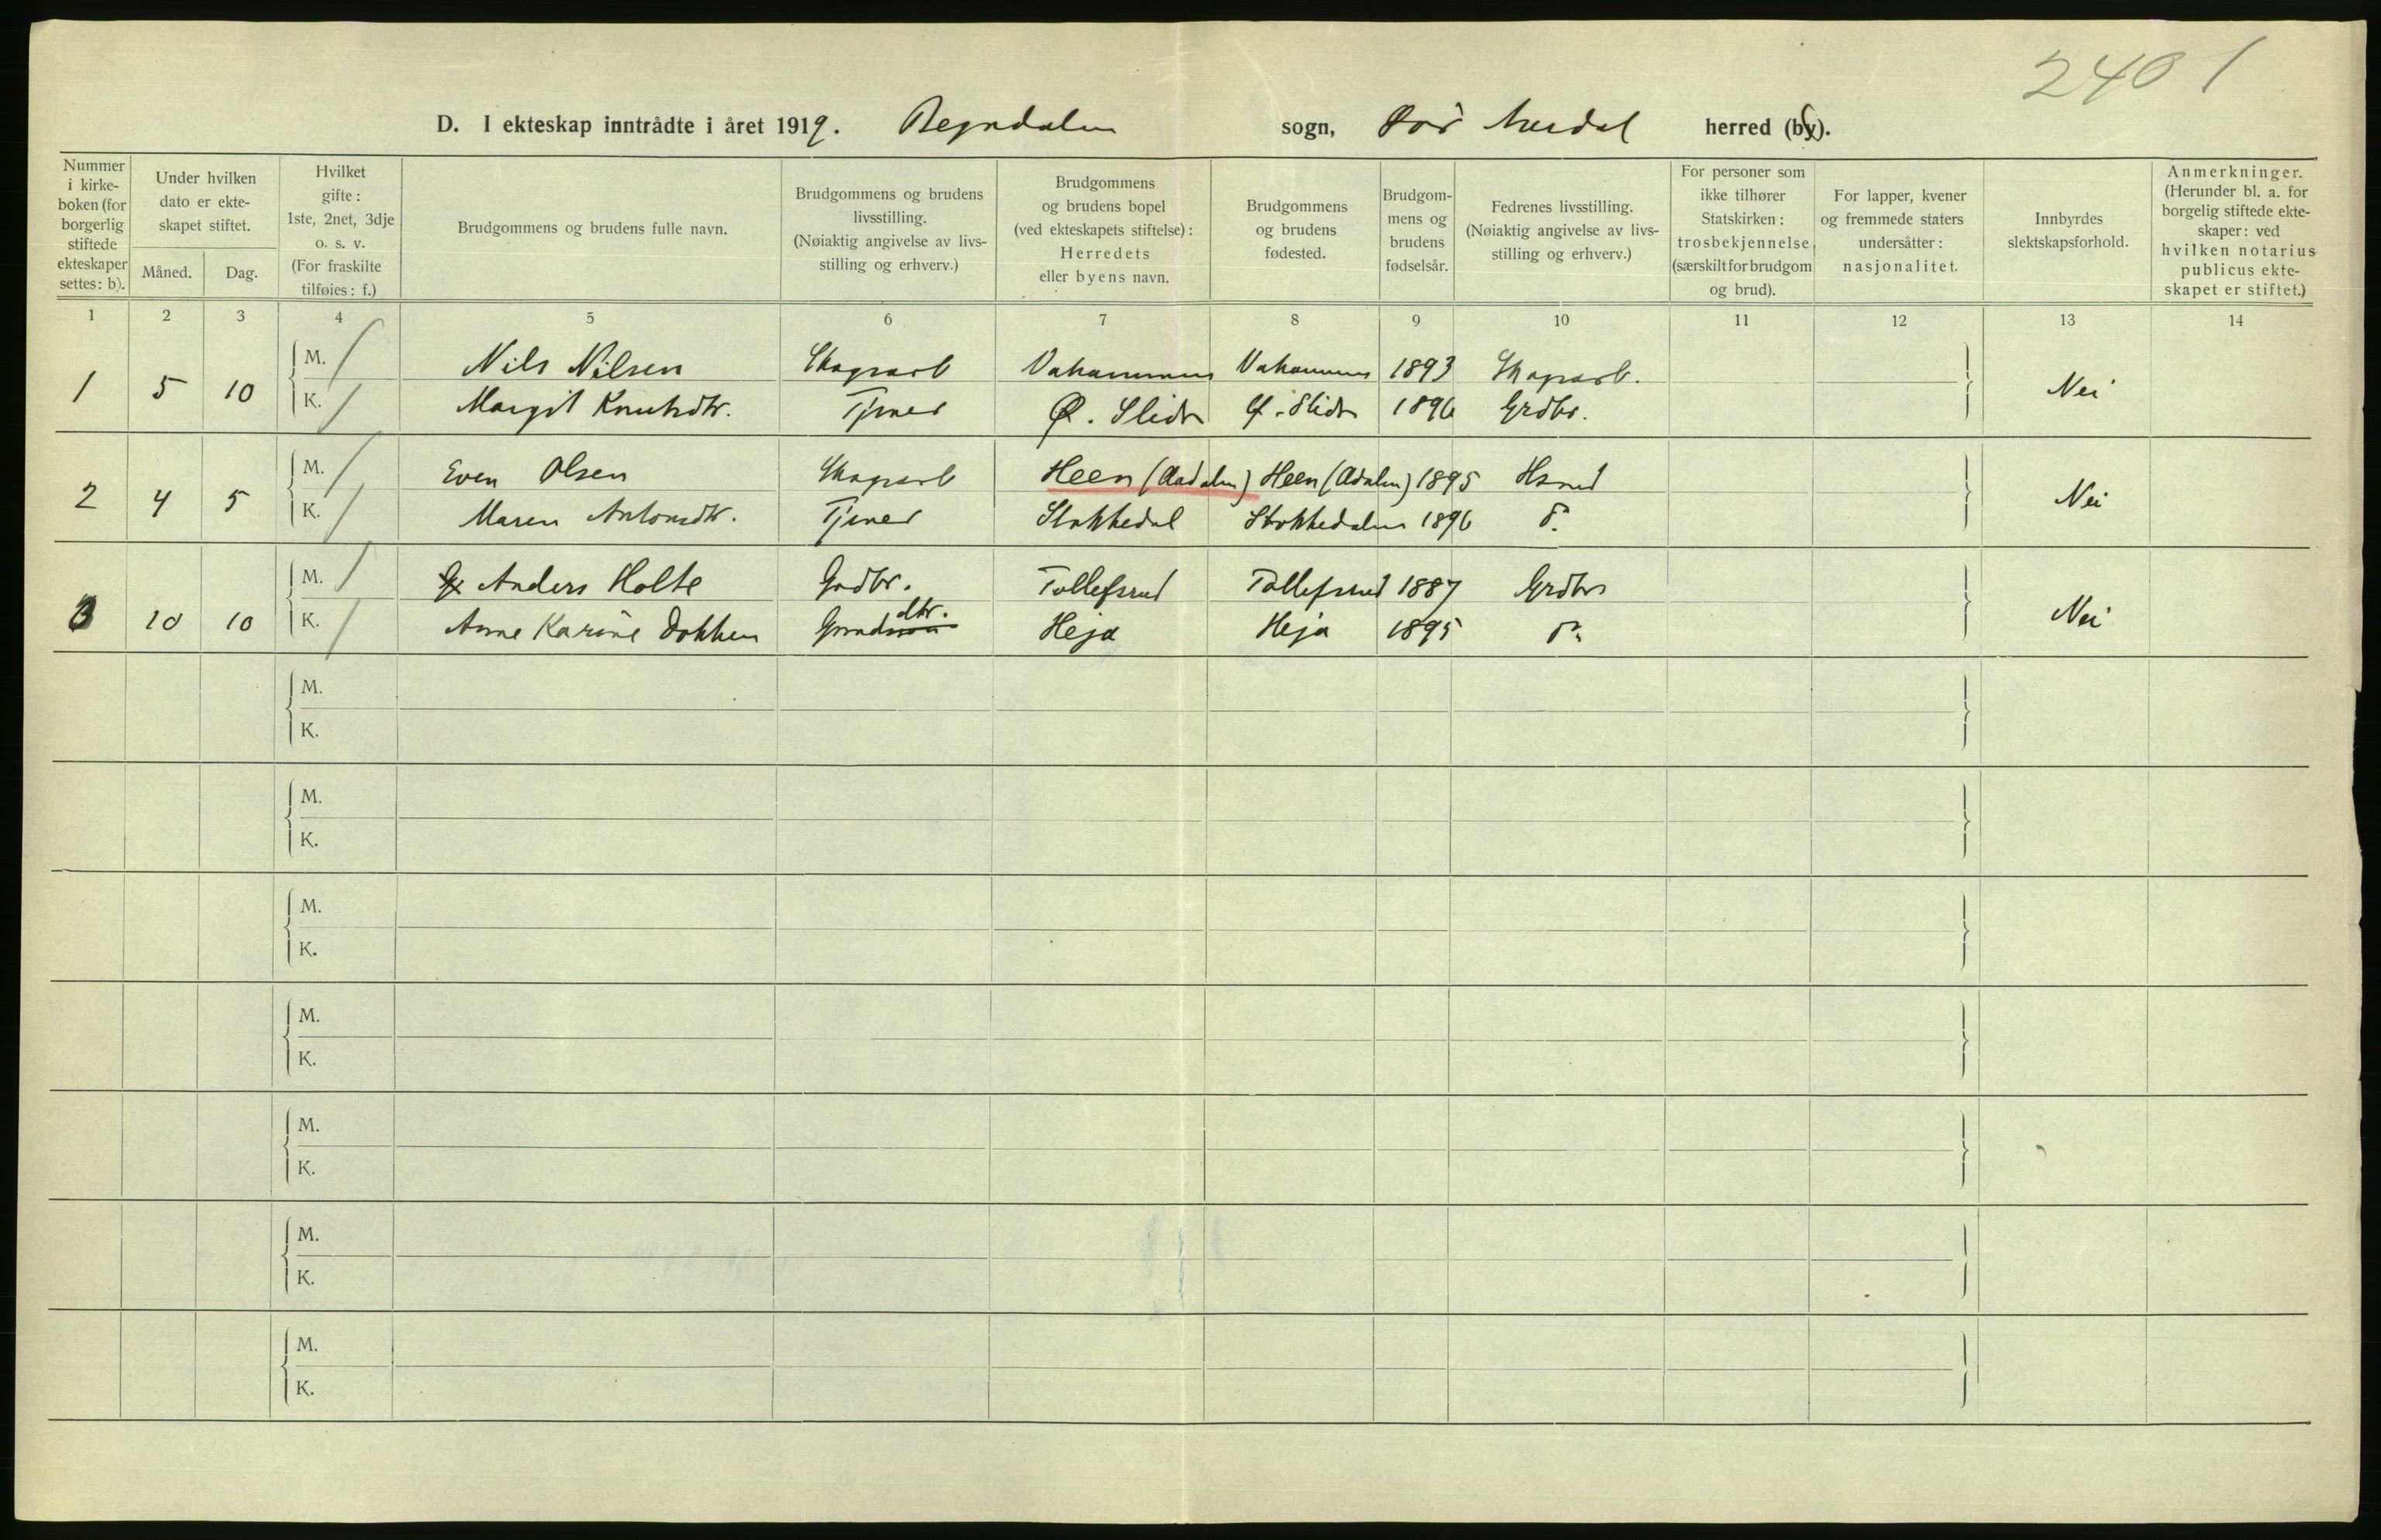 2401
D. I ekteskap inntrådte i året 1919. Begndalen sogn, Sør Aurdal herred (by).
Nummer i kirkeboken (for borgerlig stiftede ekteskaper settes: b).
Under hvilken dato er ekteskapet stiftet.
Måned. Dag.
Hvilket gifte: 1ste, 2net, 3dje o. s. v. (For fraskilte tilføies: f.)
Brudgommens og brudens fulle navn.
Brudgommens og brudens livsstilling. (Nøiaktig angivelse av livsstilling og erhverv.)
Brudgommens og brudens bopel (ved ekteskapets stiftelse): Herredets eller byens navn.
Brudgommens og brudens fødested.
Brudgommens og brudens fødselsår.
Fedrenes livsstilling. (Nøiaktig angivelse av livsstilling og erhverv.)
For personer som ikke tilhører Statskirken: trosbekjennelse, (særskilt for brudgom og brud).
For lapper, kvener og fremmede staters undersåtter: nasjonalitet.
Innbyrdes slektskapsforhold.
Anmerkninger. (Herunder bl. a. for borgelig stiftede ekteskaper: ved hvilken notarius publicus ekteskapet er stiftet.)
1 2 3 4 5 6 7 8 9 10 11 12 13 14
1 5 10 M. / Nils Nilsen Skogsarb Vahammeren Vahammeren 1893 Skogsarb. Nei
K. / Margit Knutsdtr. Tjener Ø. Slidre Ø. Slidre 1896 Grdbr.
2 4 5 M. / Even Olsen Skogsarb Heen (Aadalen) Heen (Adalen) 1895 Hsmd Nei
K. / Maren Antonsdtr. Tjener Stokkedal Stokkedalen 1896 Do
3 10 10 M. / Anders Holte Grdbr. Tollefsrud Tollefsrud 1887 Grdbr Nei
K. / Anne Karine Dokken Grmdsdtr. Heja Heja 1895 Do
M.
K.
M.
K.
M.
K.
M.
K.
M.
K.
M.
K.
M.
K.